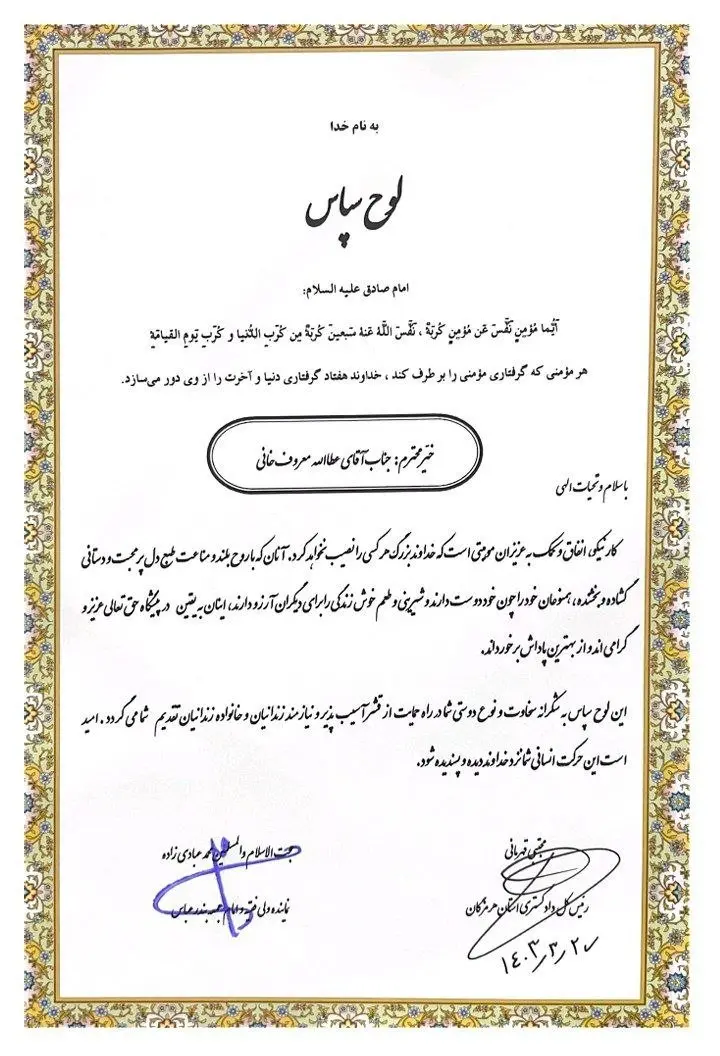 به نام خدا
لوح سپاس
امام صادق علیه السلام:
أیُّما مُؤمِنٍ نَفَّسَ عَن مُؤمِنٍ كُربَةً ، نَفَّسَ اللَّهُ عَنهُ سَبعینَ كُربَةً مِن كُرَبِ الدُّنیا و كُرَبِ یَومِ القیامَةِ
هر مؤمنی که گرفتاری مؤمنی را بر طرف کند ، خداوند هفتاد گرفتاری دنیا و آخرت را از وی دور می‌سازد.
خیّر محترم: جناب آقای عطاالله معروف خانی
باسلام و تحیات الهی
کار نیکو، انفاق و کمک به عزیزان موهبتی است که خداوند بزرگ هر کسی را نصیب نخواهد کرد. آنان که با روح بلند و مناعت طبع دل پر محبت و دستانی
گشاده و بخشنده، همنوعان خود را چون خود دوست دارند و شیرینی و طعم خوش زندگی را برای دیگران آرزو دارند، اینان به یقین در پیشگاه حق تعالی عزیز و
گرامی اند و از بهترین پاداش برخوردارند.
این لوح سپاس به شکرانه سخاوت و نوع دوستی شما در راه حمایت از قشر آسیب پذیر و نیازمند زندانیان و خانواده زندانیان تقدیم شما می گردد . امید
است این حرکت انسانی شما نزد خداوند دیده و پسندیده شود.
مجتبی قهرمانی
رئیس کل دادگستری استان هرمزگان
۱۴۰۳/۳/۲۰
حجت الاسلام والمسلمین محمد عبادی زاده
نماینده ولی فقیه و امام جمعه بندرعباس